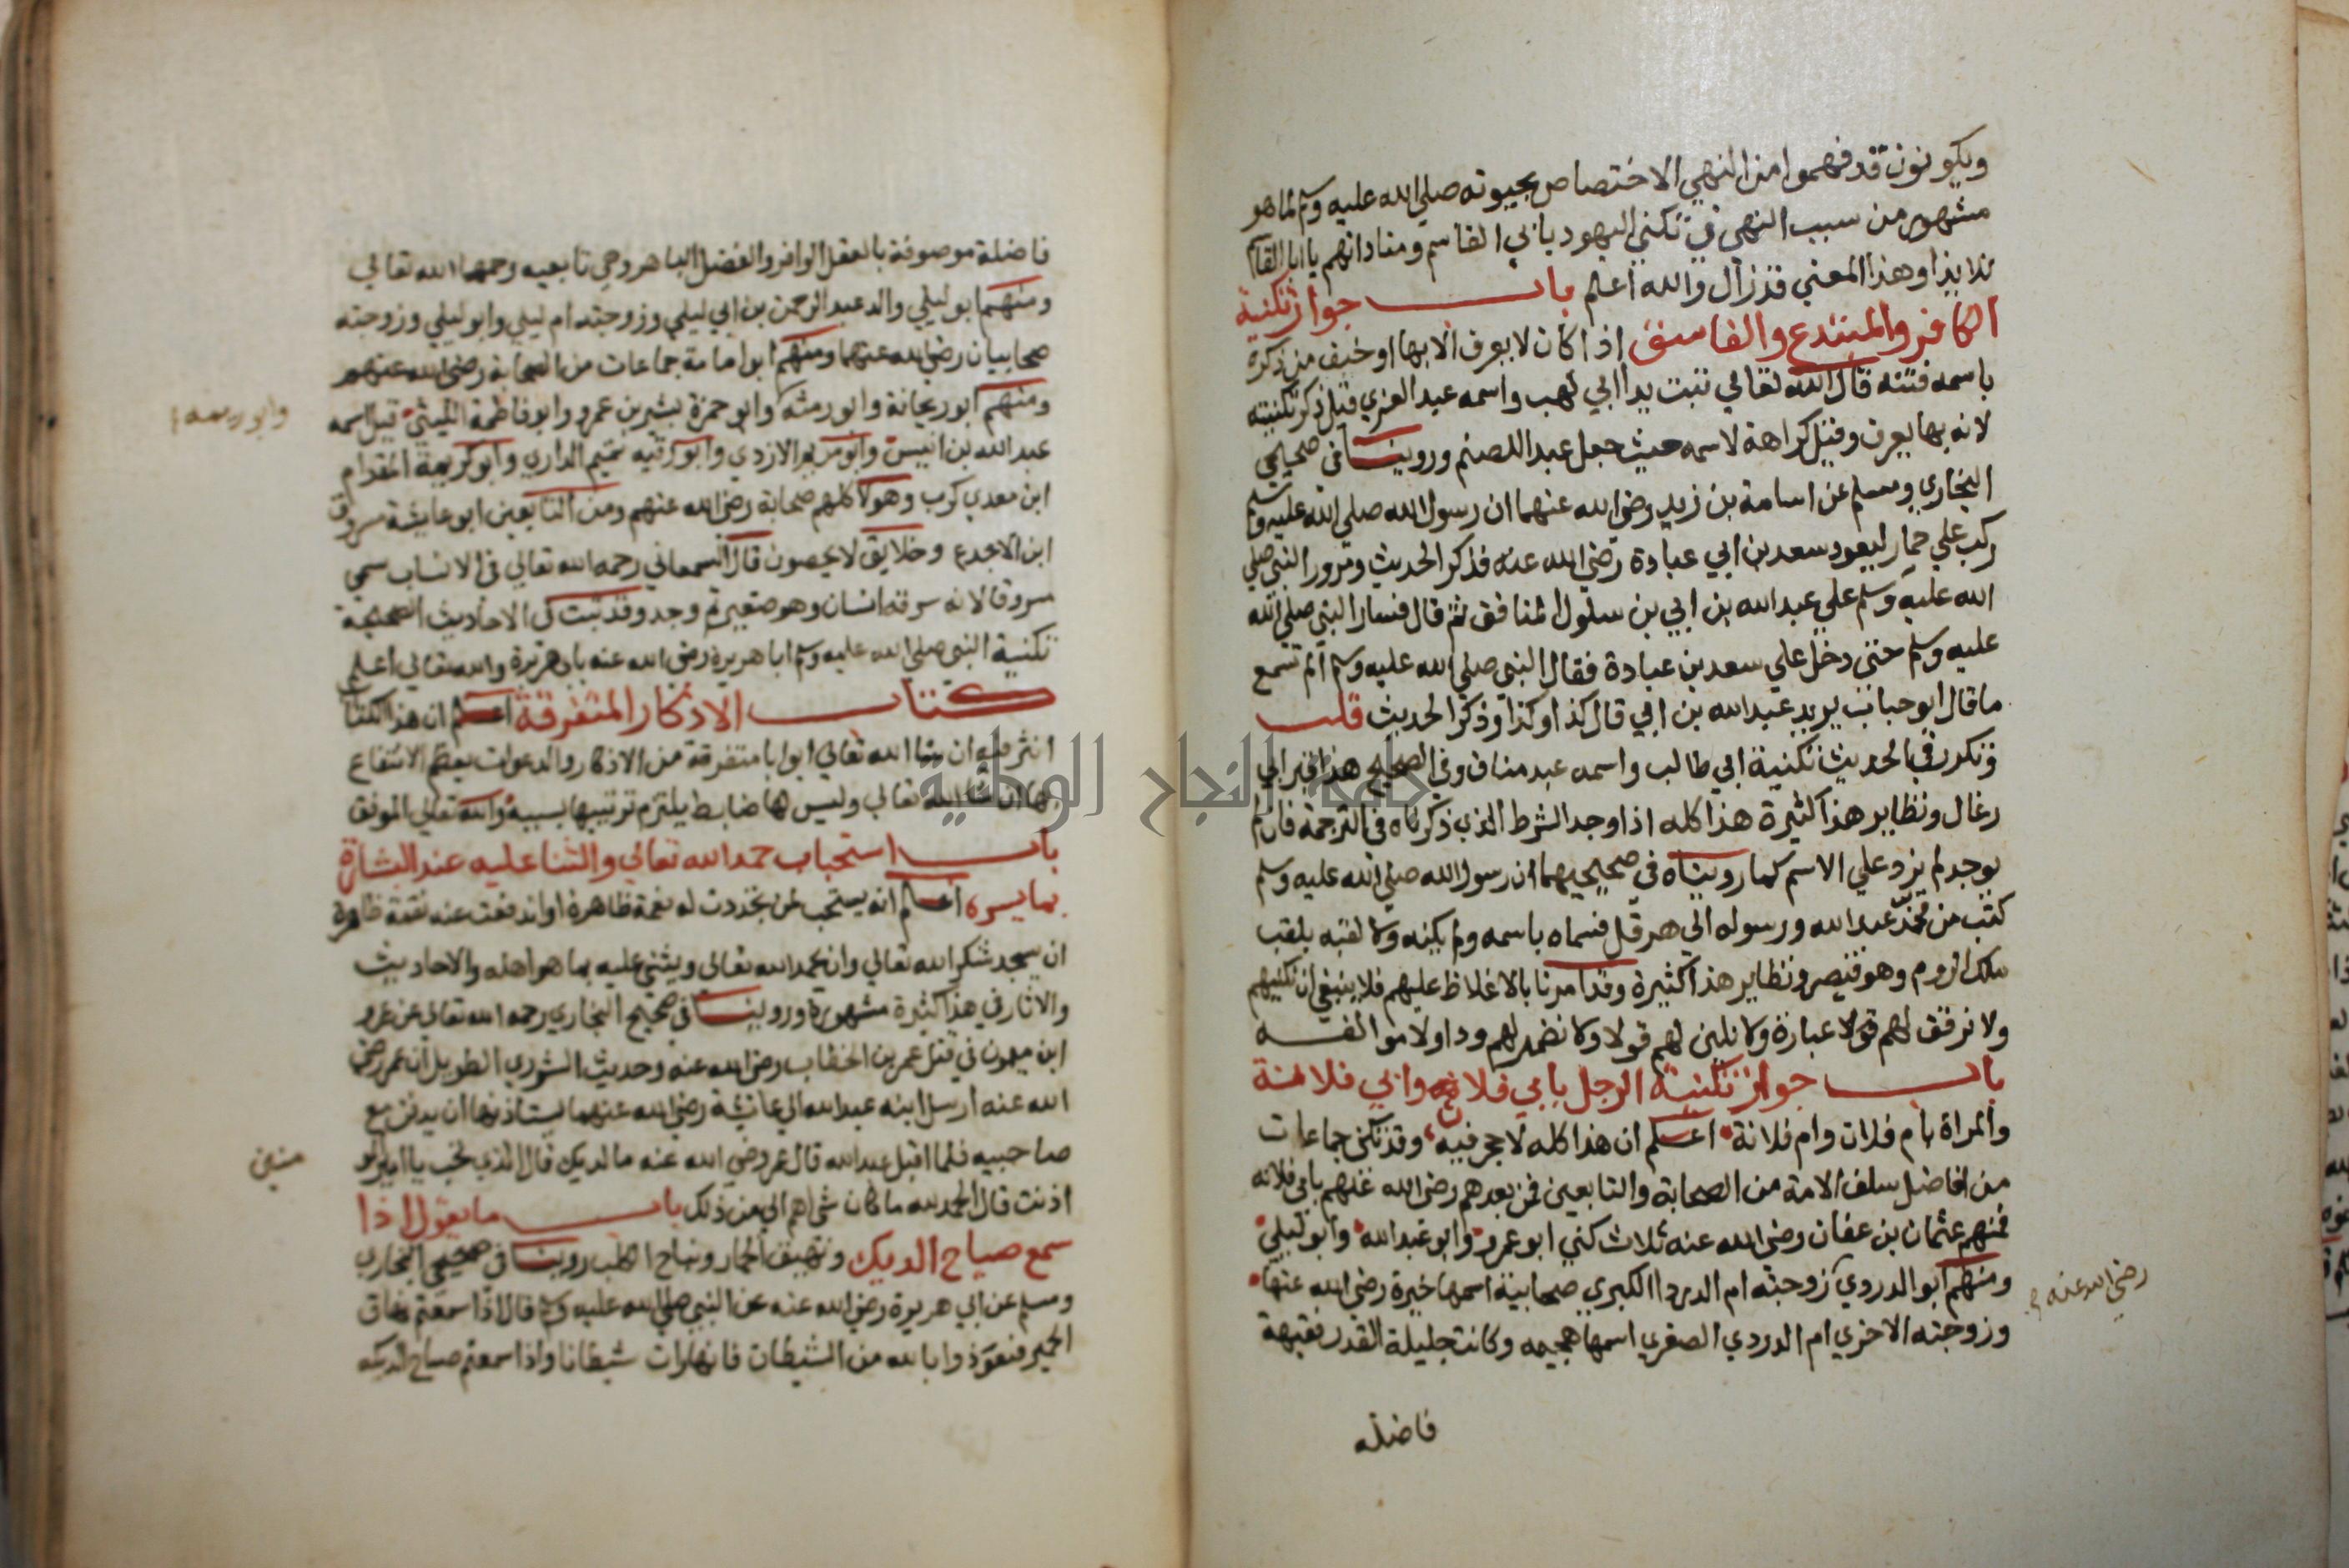 ويكونون قد فهموا من النهي الاختصاص بحيوته صلي الله عليه وسلم لما هو
مشهور من سبب النهي في تكني اليهود بابي القاسم ومناداتهم يا ابا القاسم
للايذا وهذا المعني قد زال والله اعلم باب جواز تكنية
الكافر والمبتدع والفاسق اذا كان لا يعرف الا بها او خيف من ذكره
باسمه فتنة قال الله تعالي تبت يدا ابي لهب واسمه عبد العزي قيل ذكر تكنيته
لانه بها يعرف وقيل كراهة لاسمه حيث جعل عبدا للصنم وروينا في صحيحي
البخاري ومسلم عن اسامة بن زيد رضي الله عنهما ان رسول الله صلي الله عليه وسلم
ركب علي حمار ليعود سعد بن ابي عبادة رضي الله عنه فذكر الحديث ومرور النبي صلي
الله عليه وسلم علي عبد الله بن ابي بن سلول المنافق ثم قال فسار النبي صلي الله
عليه وسلم حتي دخل علي سعد بن عبادة فقال النبي صلي الله عليه وسلم الم تسمع
ما قال ابو حباب يريد عبد الله بن ابي قال كذا وكذا وذكر الحديث قلت
وتكرر في الحديث تكنية ابي طالب واسمه عبد مناف وفي الصحيح هذا قبر ابي
رغال ونظاير هذا كثيرة هذا كله اذا وجد الشرط الذي ذكرناه في الترجمة فان لم
يوجد لم يزد علي الاسم كما رويناه في صحيحيهما ان رسول الله صلي الله عليه وسلم
كتب من محمد عبد الله ورسوله الي هرقل فسماه باسمه ولم يكنه ولا لقبه بلقب
ملك الروم وهو قيصر ونظاير هذا كثيرة وقد امرنا بالاغلاظ عليهم فلا ينبغي ان نكنيهم
ولا نرقق لهم عبارة ولا نلين لهم قولا ولا نضمر لهم ودا ولا موالفة
باب جواز تكنية الرجل بابي فلانة وابي فلانة
والمراة بام فلان وام فلانة اعلم ان هذا كله لا حجر فيه وقد تكني جماعات
من افاضل سلف الامة من الصحابة والتابعين فمن بعدهم رضي الله عنهم بابي فلانة
فمنهم عثمان بن عفان رضي الله عنه ثلاث كني ابو عمرو وابو عبد الله وابو ليلي
ومنهم ابو الدردي زوجته ام الدردا الكبري صحابية اسمها خيرة رضي الله عنها
رضي الله عنه
وزوجته الاخري ام الدردي الصغري اسمها هجيمه وكانت جليلة القدر فقيهة
فاضله
فاضلة موصوفة بالعقل الوافر والفضل الباهر وهي تابعيه رحمها الله تعالي
ومنهم ابو ليلي والد عبد الرحمن بن ابي ليلي وزوجته ام ليلي وابو ليلي وزوجته
صحابيان رضي الله عنهما ومنهم ابو امامة جماعات من الصحابة رضي الله عنهم
ومنهم ابو ريحانة وابو رمثه وابو حمزة بشير بن عمرو وابو فاطمة الليثي قيل اسمه
عبد الله بن انيس وابو مريم الازدي وابو رقيه تميم الداري وابو كريمة المقدام
ابن معدي كرب وهولا كلهم صحابة رضي الله عنهم ومن التابعين ابو عايشة مسروق
ابن الاجدع وخلايق لا يحصون قال السمعاني رحمه الله تعالي في الانساب سمي
مسروقا لانه سرقه انسان وهو صغير ثم وجد وقد ثبت في الاحاديث الصحيحة
تكنية النبي صلي الله عليه وسلم ابا هريرة رضي الله عنه بابي هريرة والله تعالي اعلم
كتاب الاذكار المتفرقة اعلم ان هذا الكتاب
انثر فيه ان شا الله تعالي ابوابا متفرقة من الاذكار والدعوات يعظم الانتفاع
بها ان شا الله تعالي وليس لها ضابط يلتزم ترتيبها بسببه والله تعالي الموفق
باب استحباب حمد الله تعالي والثنا عليه عند البشارة
بما يسره اعلم انه يستحب لمن تجددت له نعمة ظاهرة او اندفعت عنه نقمة ظاهرة
ان يسجد شكرا لله تعالي وان يحمد الله تعالي ويثني عليه بما هو اهله والاحاديث
والاثار في هذا كثيرة مشهورة وروينا في صحيح البخاري رحمه الله تعالي عن عمرو
ابن ميمون في قتل عمر بن الخطاب رضي الله عنه وحديث الشوري الطويل ان عمر رضي
الله عنه ارسل ابنه عبد الله الي عائشة رضي الله عنهما يستاذنها ان يدفن مع
صاحبيه فلما اقبل عبد الله قال عمر رضي الله عنه ما لديك قال الذي تحب يا امير
اذنت قال الحمد لله ما كان شي اهم الي من ذلك باب ما يقول اذا
سمع صياح الديك ونهيق الحمار ونباح الكلب روينا في صحيحي البخاري
ومسلم عن ابي هريرة رضي الله عنه عن النبي صلي الله عليه وسلم قال اذا سمعتم نهاق
الحمير فتعوذوا بالله من الشيطان فانها رات شيطانا واذا سمعتم صياح الديكه
جامعة النجاح الوطنية